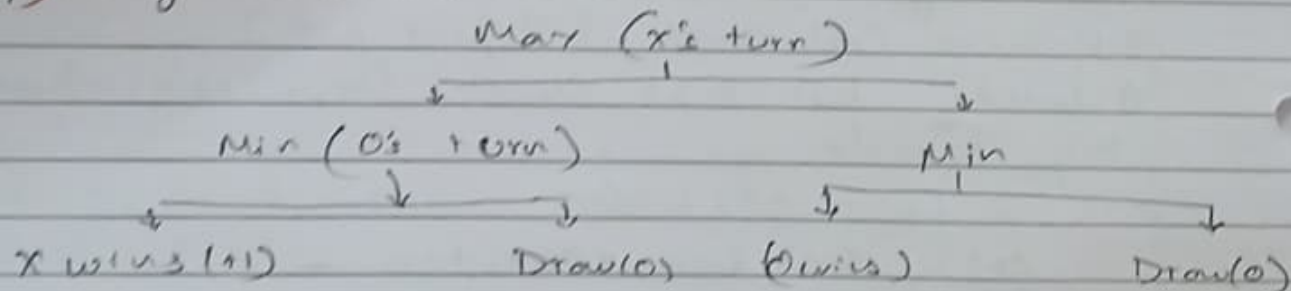 Max (X's turn)
Min (O's turn) Min
X wins (+1) Draw(0) (O wins) Draw(0)